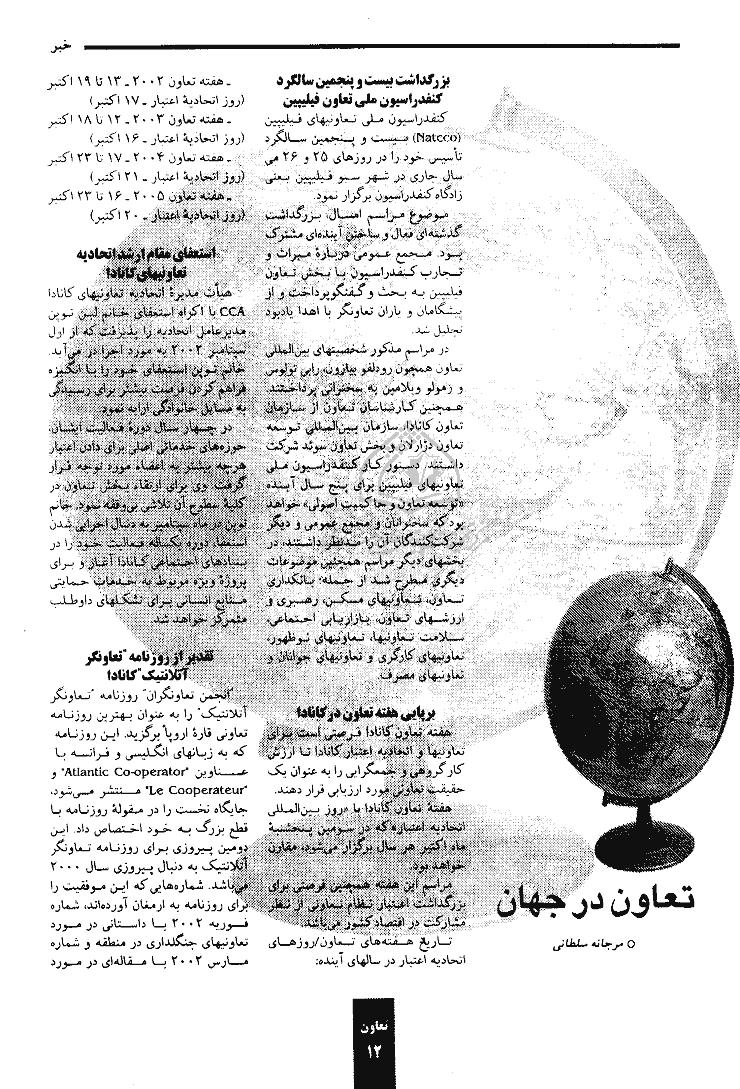 خبر
تعاون در جهان
○ مرجانه سلطانی
بزرگداشت بیست و پنجمین سالگرد
کنفدراسیون ملی تعاون فیلیپین
کنفدراسیون ملی تعاونیهای فیلیپین
(Natcco) بیست و پنجمین سالگرد
تأسیس خود را در روزهای ۲۵ و ۲۶ می
سال جاری در شهر سبو فیلیپین یعنی
زادگاه کنفدراسیون برگزار نمود.
موضوع مراسم امسال، بزرگداشت
گذشته‌ای فعال و ساختن آینده‌ای مشترک
بود. مجمع عمومی دربارهٔ میراث و
تجارب کنفدراسیون با بخش تعاون
فیلیپین به بحث و گفتگو پرداخت و از
پیشگامان و یاران تعاونگر با اهدا یادبود
تجلیل شد.
در مراسم مذکور شخصیتهای بین‌المللی
تعاون همچون رودلفو بیازون، رابی تولوس
و زمولو ویلامین به سخنرانی پرداختند.
همچنین کارشناسان تعاون از سازمان
تعاون کانادا، سازمان بین‌المللی توسعه
تعاون دژارلان و بخش تعاون سوئد شرکت
داشتند. دستور کار کنفدراسیون ملی
تعاونیهای فیلیپین برای پنج سال آینده
«توسعه تعاون و حاکمیت اصولی» خواهد
بود که سخنرانان و مجمع عمومی و دیگر
شرکت‌کنندگان آن را مدنظر داشتند. در
بخشهای دیگر مراسم همچنین موضوعات
دیگری مطرح شد از جمله: بانکداری
تعاون، تعاونیهای مسکن، رهبری و
ارزشهای تعاون، بازاریابی اجتماعی،
سلامت تعاونیها، تعاونیهای نوظهور،
تعاونیهای کارگری و تعاونیهای جوانان و
تعاونیهای مصرف.
برپایی هفته تعاون در کانادا
هفته تعاون کانادا فرصتی است برای
تعاونیها و اتحادیه اعتبار کانادا تا ارزش
کار گروهی و جمعگرایی را به عنوان یک
حقیقت تعاونی مورد ارزیابی قرار دهند.
هفتهٔ تعاون کانادا با «روز بین‌المللی
اتحادیه اعتبار» که در سومین پنجشنبهٔ
ماه اکتبر هر سال برگزار می‌شود، مقارن
خواهد بود.
مراسم این هفته همچنین فرصتی برای
بزرگداشت اعتبار نظام تعاونی از نظر
مشارکت در اقتصاد کشور می‌باشد.
تاریخ هفته‌های تعاون/روزهای
اتحادیه اعتبار در سالهای آینده:
ـ هفته تعاون ۲۰۰۲ ـ ۱۳ تا ۱۹ اکتبر
(روز اتحادیهٔ اعتبار ـ ۱۷ اکتبر)
ـ هفته تعاون ۲۰۰۳ ـ ۱۲ تا ۱۸ اکتبر
(روز اتحادیهٔ اعتبار ـ ۱۶ اکتبر)
ـ هفته تعاون ۲۰۰۴ ـ ۱۷ تا ۲۳ اکتبر
(روز اتحادیهٔ اعتبار ـ ۲۱ اکتبر)
ـ هفته تعاون ۲۰۰۵ ـ ۱۶ تا ۲۳ اکتبر
(روز اتحادیهٔ اعتبار ـ ۲۰ اکتبر)
استعفای مقام ارشد اتحادیه
تعاونیهای کانادا
هیأت مدیرهٔ اتحادیه تعاونیهای کانادا
CCA با اکراه استعفای خانم لین توپن
مدیرعامل اتحادیه را پذیرفت که از اول
سپتامبر ۲۰۰۲ به مورد اجرا در می‌آید.
خانم توپن استعفای خود را با انگیزه
فراهم کردن فرصت بیشتر برای رسیدگی
به مسایل خانوادگی ارائه نمود.
در چهار سال دورهٔ فعالیت ایشان،
حوزه‌های خدماتی اصلی برای دادن اعتبار
هرچه بیشتر به اعضاء مورد توجه قرار
گرفت. وی برای ارتقاء بخش تعاون در
کلیهٔ سطوح آن تلاشی بی‌وقفه نمود. خانم
توپن در ماه سپتامبر به دنبال اجرایی شدن
استعفا، دوره یکساله فعالیت خود را در
بنیادهای اجتماعی کانادا آغاز و برای
پروژهٔ ویژه مربوط به خدمات حمایتی
منابع انسانی برای تشکلهای داوطلب
متمرکز خواهد شد.
تقدیر از روزنامه "تعاونگر
آتلانتیک" کانادا
"انجمن تعاونگران" روزنامه "تعاونگر
آتلانتیک" را به عنوان بهترین روزنامه
تعاونی قارهٔ اروپا برگزید. این روزنامه
که به زبانهای انگلیسی و فرانسه با
عناوین "Atlantic Co-operator" و
"Le Cooperateur" منتشر می‌شود،
جایگاه نخست را در مقولهٔ روزنامه با
قطع بزرگ به خود اختصاص داد. این
دومین پیروزی برای روزنامه تعاونگر
آتلانتیک به دنبال پیروزی سال ۲۰۰۰
می‌باشد. شماره‌هایی که این موفقیت را
برای روزنامه به ارمغان آورده‌اند، شماره
فوریه ۲۰۰۲ با داستانی در مورد
تعاونیهای جنگلداری در منطقه و شماره
مارس ۲۰۰۲ با مقاله‌ای در مورد
تعاون
۱۲